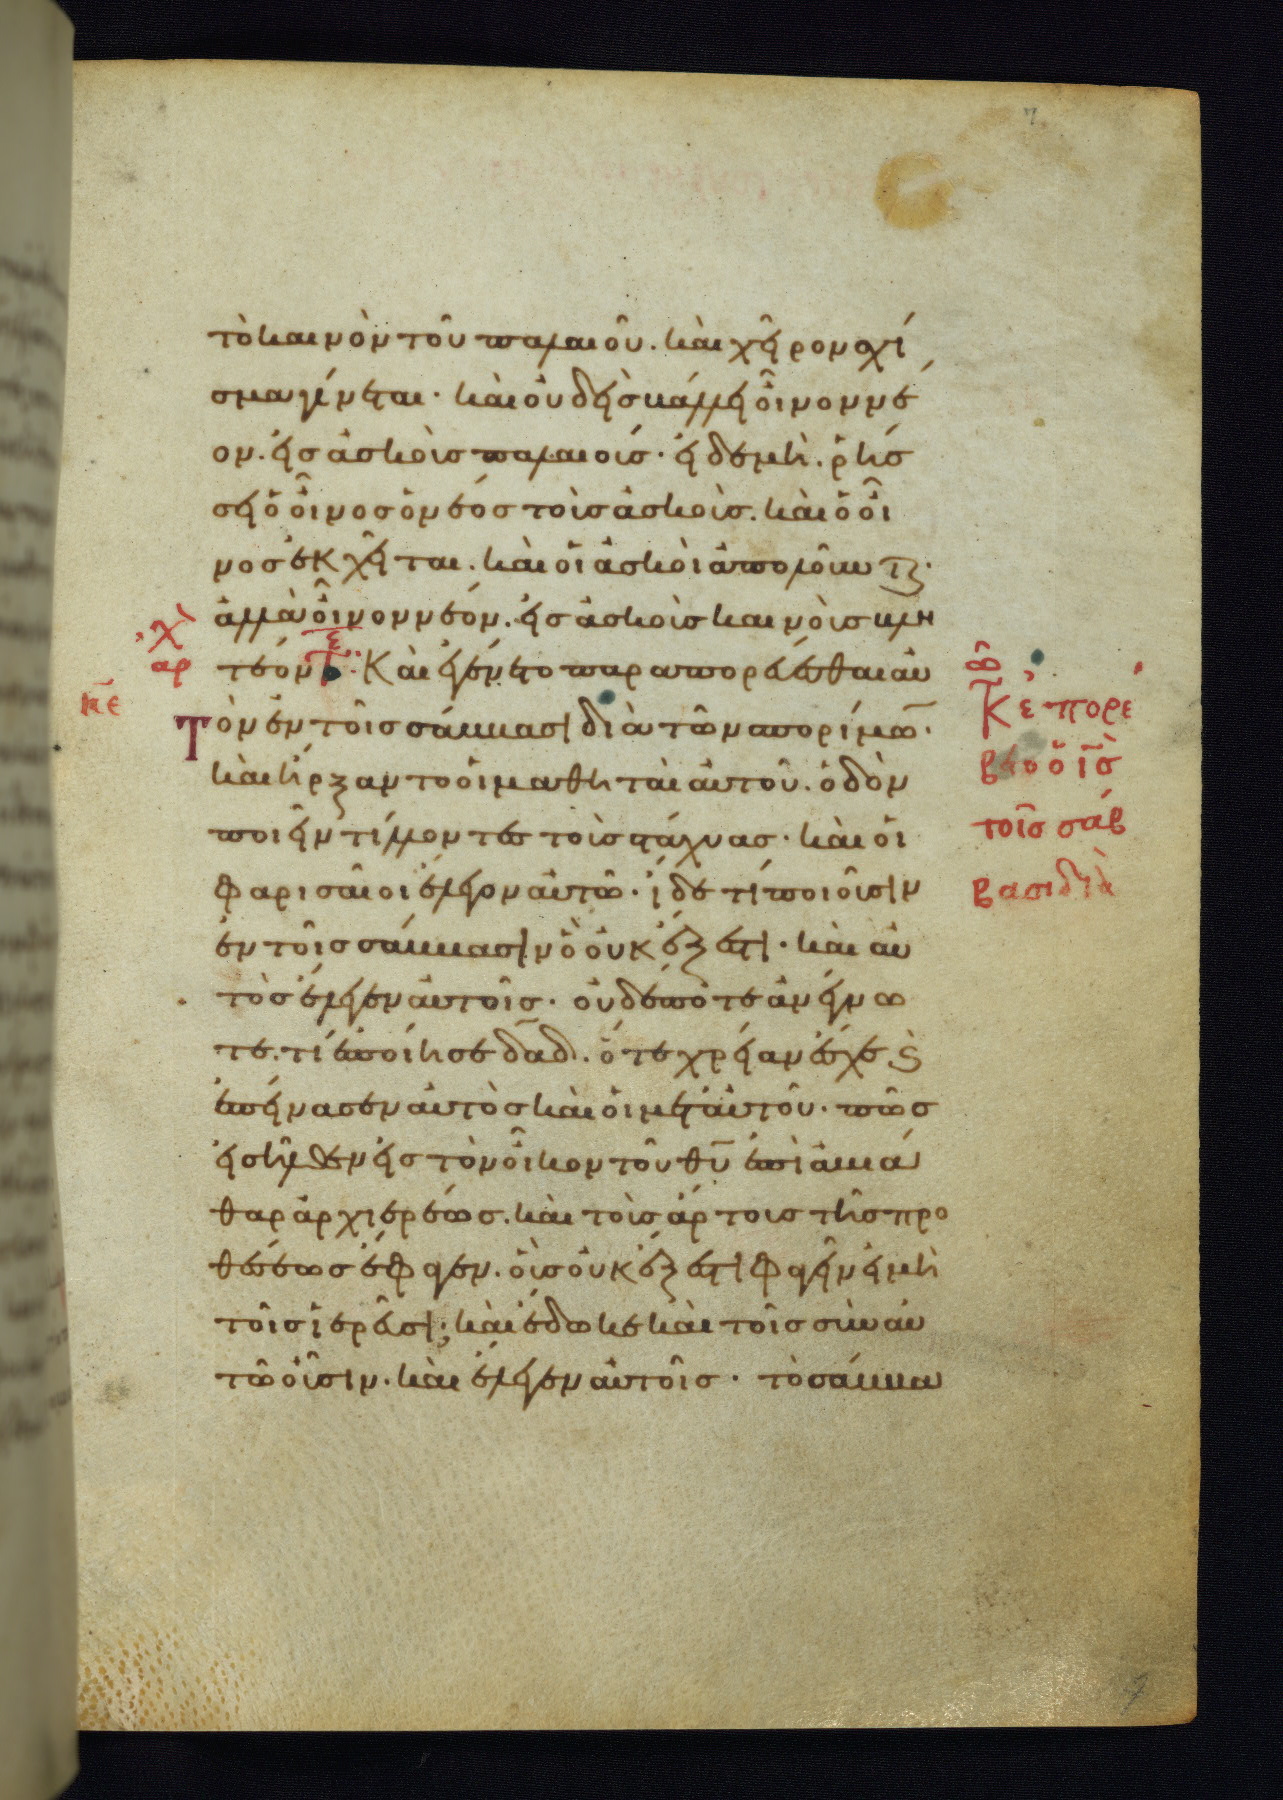 τὸ καινὸν τοῦ παλαιοῦ. καὶ χεῖρον σχί
σμα γίνεται· καὶ οὐδεὶς βάλλει οἶνον νέ
ον. εἰς ἀσκοὺς παλαιούς· εἰ δὲ μὴ. ῥήσ
σει ὁ οἶνος ὁ νέος τοὺς ἀσκούς. καὶ ὁ οἶ
νος ἐκχεῖται. καὶ οἱ ἀσκοὶ ἀπολοῦνται·
ἀλλὰ οἶνον νέον. εἰς ἀσκοὺς καινοὺς βλη
τέον· Καὶ ἐγένετο παραπορεύεσθαι αὐ
Τὸν ἐν τοῖς σάββασι διὰ τῶν σπορίμω̅·
καὶ ἤρξαντο οἱ μαθηταὶ αὐτοῦ. ὁδὸν
ποιεῖν τίλλοντες τοὺς στάχυας· καὶ οἱ
φαρισαῖοι ἔλεγον αὐτῶ· ἴδε τί ποιοῦσιν
ἐν τοῖς σάββασιν ὃ οὐκ ἔξεστι· καὶ αὐ
τὸς ἔλεγεν αὐτοῖς· οὐδέποτε ἀνέγνω
τε. τί ἐποίησε δα̅δ. ὅτε χρείαν ἔσχε κὶ
ἐπείνασεν αὐτὸς καὶ οἱ μετ' αὐτοῦ· πῶς
εἰσῆλθεν εἰς τὸν οἶκον τοῦ θυ̅ ἐπὶ ἀβιά
θαρ ἀρχιερέως. καὶ τοὺς ἄρτους τῆς προ
θέσεως ἔφαγεν. οὓς οὐκ ἔξεστι φαγεῖν εἰ μὴ
τοῖς ἱερεῦσι; καὶ ἔδωκε καὶ τοῖς σὺν αὐ
τῶ οὖσιν. καὶ ἔλεγεν αὐτοῖς· τὸ σάββα
αρ
κε
Κ ἐ πορε
ὁ ι̅ς
τοῖς σάβ
βασι διὰ